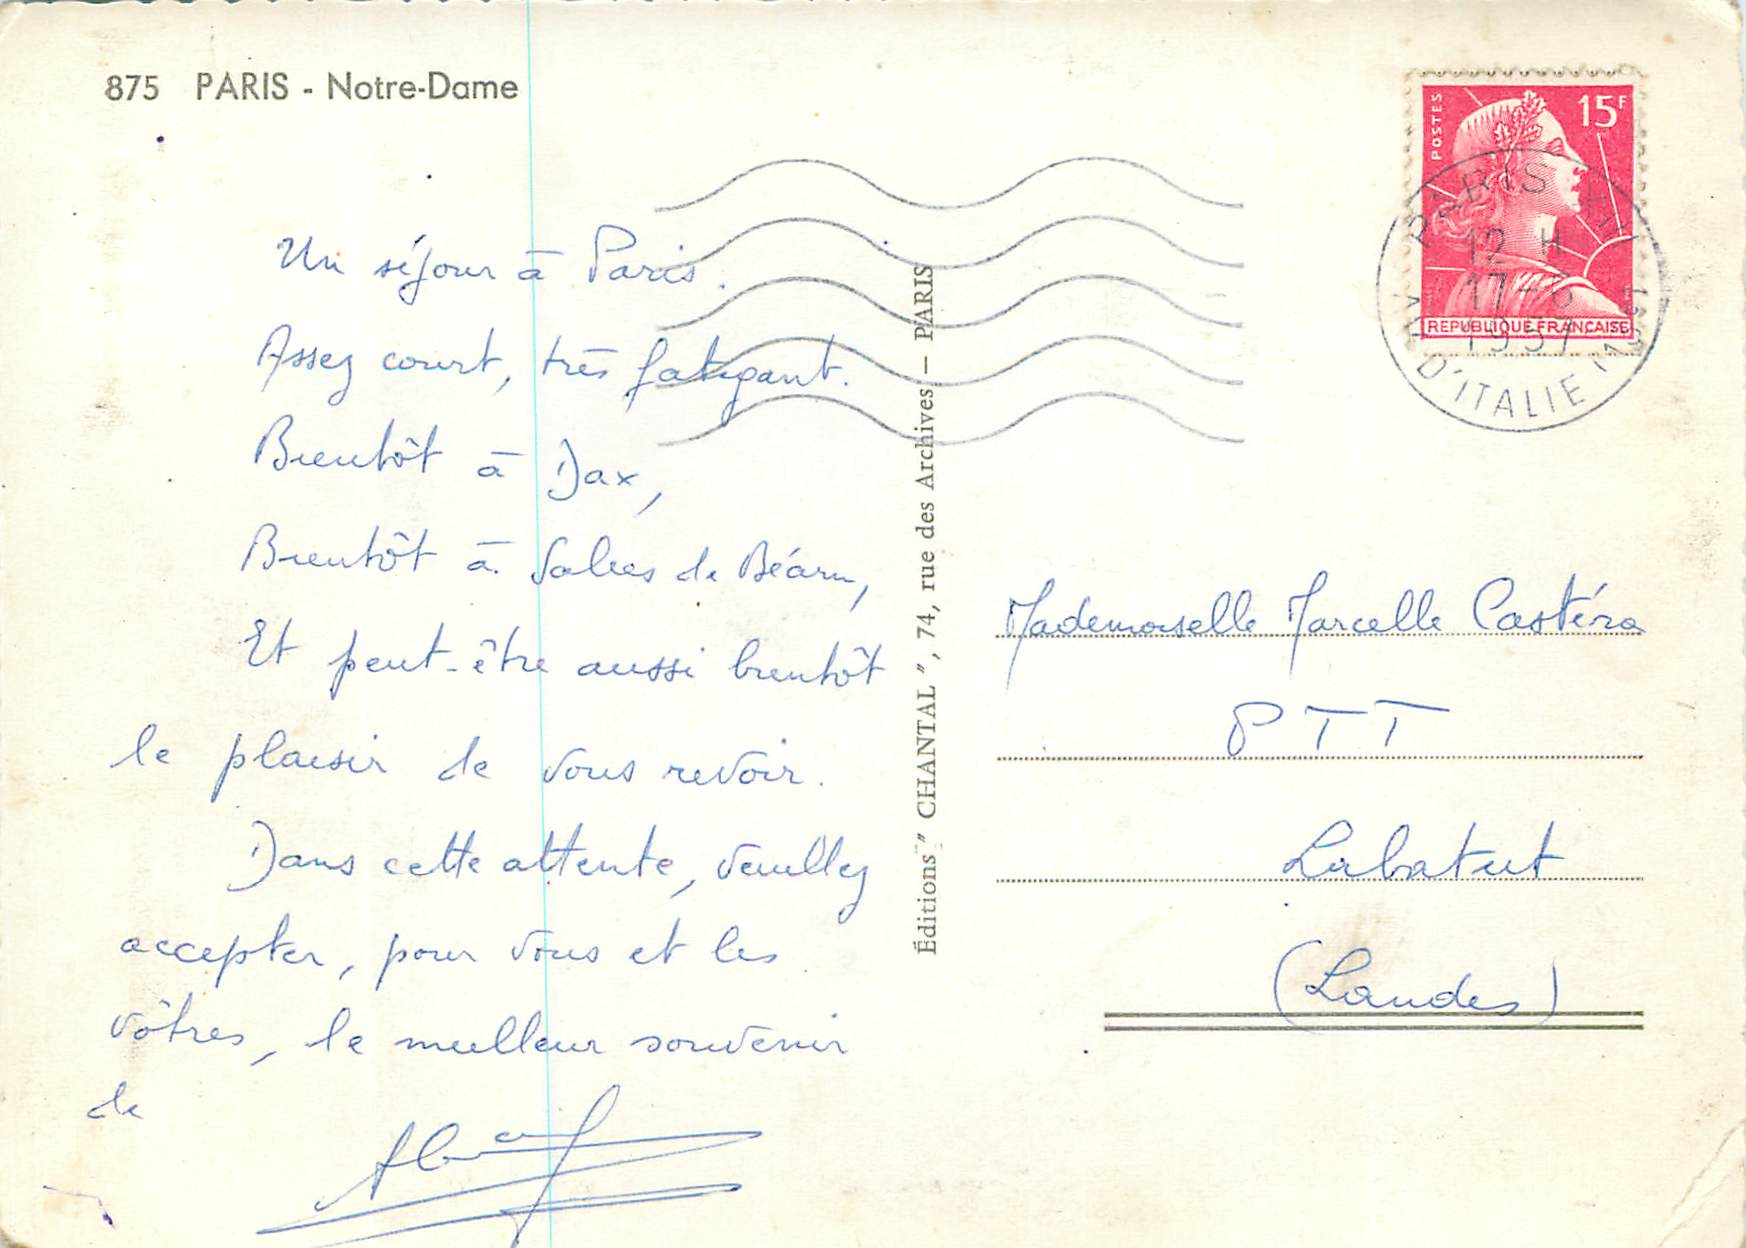 875 PARIS - Notre-Dame
Un séjour à Paris.
Assez court, très fatigant.
Bientôt à Dax,
Bientôt à Salies de Béarn,
Et peut-être aussi bientôt
le plaisir de vous revoir.
Dans cette attente, veuillez
accepter, pour vous et les
vôtres, le meilleur souvenir
de
Éditions " CHANTAL ", 74, rue des Archives – PARIS
POSTES
15F
REPUBLIQUE FRANÇAISE
PARIS XIII
12 H
17-6
1957
AV. D'ITALIE
Mademoiselle Marcelle Castéra
PTT
Labatut
(Landes)